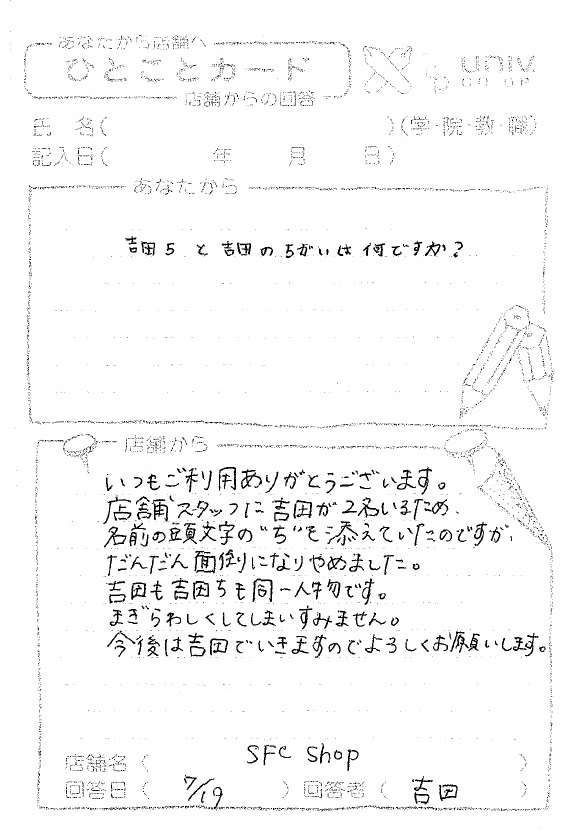 あなたから店舗へ
ひとことカード
店舗からの回答
univ.
CO-OP
氏 名( )(学・院・教・職)
記入日( 年 月 日)
あなたから
吉田ちと吉田のちがいは何ですか?
店舗から
いつもご利用ありがとうございます。
店舗スタッフに吉田が2名いるため、
名前の頭文字の"ち"を添えていたのですが、
だんだん面倒になりやめました。
吉田も吉田ちも同一人物です。
まぎらわしくしてしまいすみません。
今後は吉田でいきますのでよろしくお願いします。
店舗名( SFC Shop )
回答日( 7/19 ) 回答者( 吉田 )